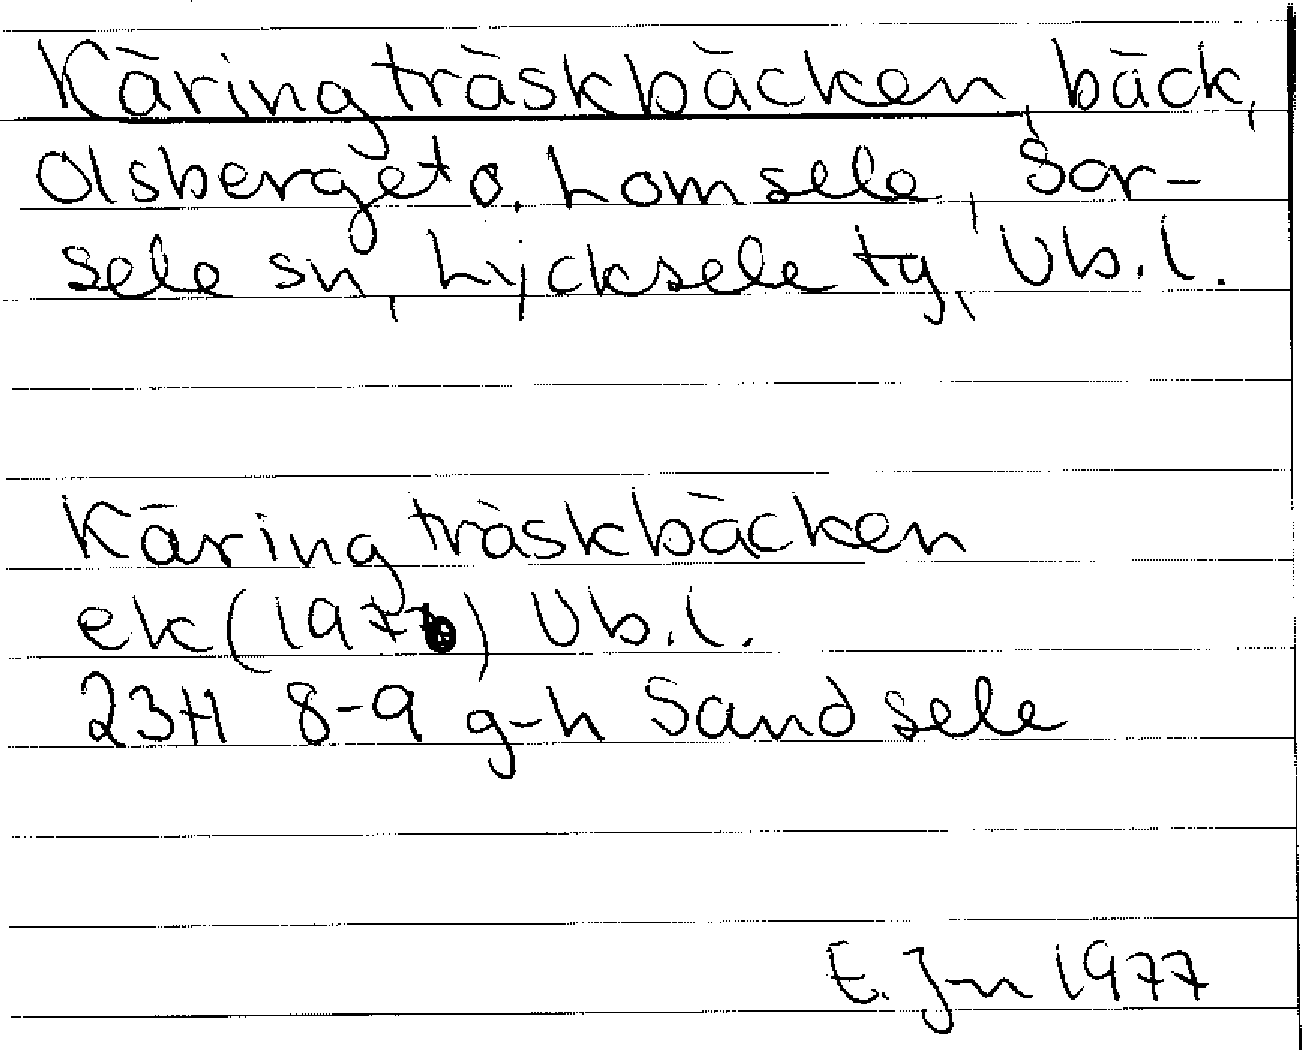 Käringträskbäcken, bäck,
Olsberget o. Lomsele, Sor-
sele sn, Lycksele tg, Vb.l.
Käringträskbäcken
ek() Vb.l.
23H 8-9 g-h Sandsele
E. Jn 1977